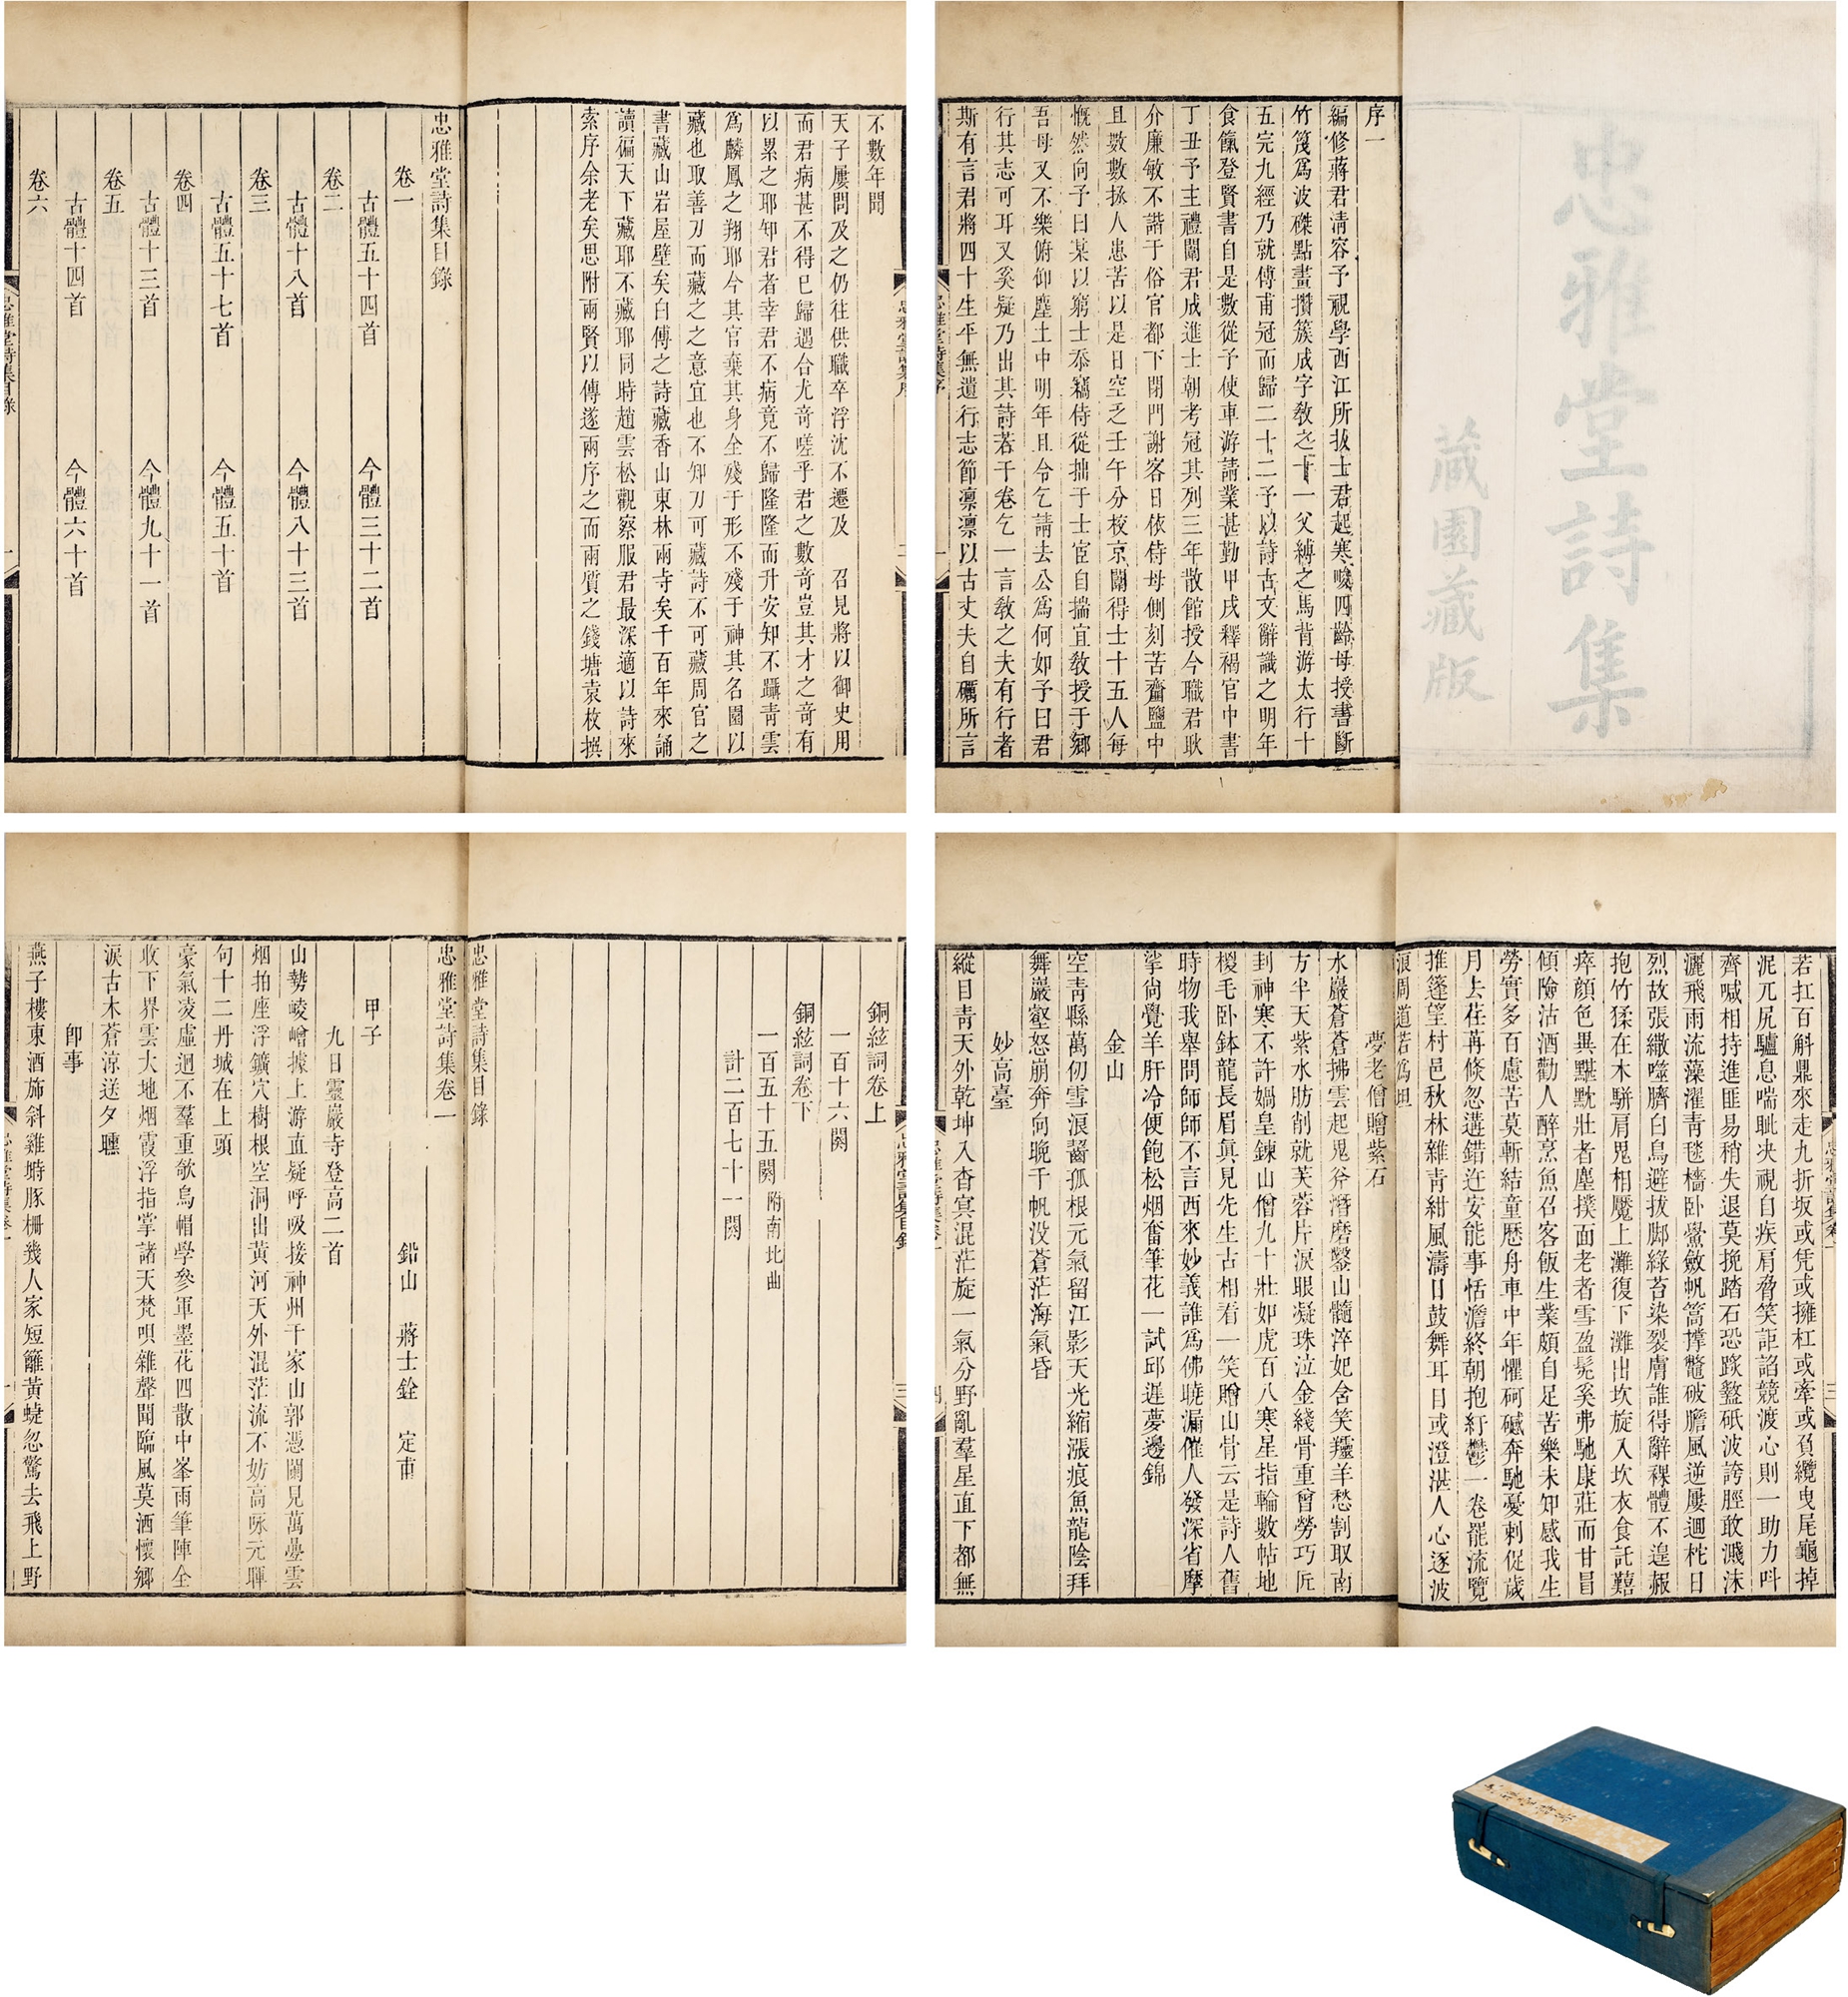 忠雅堂詩集
藏園藏版
序一
編修蔣君清容予視學西江所拔士君起寒畯四齡母授書斷
竹篾爲波磔點畫攢簇成字教之十一父縛之馬背游太行十
五完九經乃就傅甫冠而歸二十二予以詩古文辭識之明年
食餼登賢書自是數從予使車游請業甚勤甲戌釋褐官中書
丁丑予主禮闈君成進士朝考冠其列三年散館授今職君耿
介廉敏不諧于俗官都下閉門謝客日依侍母側刻苦齏鹽中
且數數拯人患苦以是日空乏壬午分校京闈得士十五人每
慨然向予曰某以窮士忝竊侍從拙于士宦自揣宜教授于鄉
吾母又不樂俯仰塵土中明年且令乞請去公爲何如予曰君
行其志可耳又奚疑乃出其詩若干卷乞一言教之夫有行者
斯有言君將四十生平無遺行志節凛凛以古丈夫自礪所言
不數年間
天子屢問及之仍往供職卒浮沈不遷及 召見將以御史用
而君病甚不得已歸遇合尤奇嗟乎君之數奇豈其才之奇有
以累之耶知君者幸君不病竟不歸隆隆而升安知不躡青雲
爲麟鳳之翔耶今其官棄其身全殘于形不殘于神其名園以
藏也取善刀而藏之之意宜也不知刀可藏詩不可藏周官之
書藏山岩屋壁矣白傅之詩藏香山東林兩寺矣千百年來誦
讀徧天下藏耶不藏耶同時趙雲松觀察服君最深適以詩來
索序余老矣思附兩賢以傳遂兩序之而兩質之錢塘袁枚撰
忠雅堂詩集目錄
卷一
古體五十四首 今體三十二首
卷二
古體十八首 今體八十三首
卷三
古體五十七首 今體五十首
卷四
古體十三首 今體九十一首
卷五
古體十四首 今體六十首
卷六
若扛百斛鼎來走九折坂或凭或擁杠或牽或負纜曳尾龜掉
泥兀尻驢息喘耻决視自疾肩脅笑詎諂競渡心則一助力呌
齊喊相持進匪易稍失退莫挽踏石恐踐盭砥波誇脛敢濺沫
灑飛雨流藻濯青毯檣卧鱟斂帆篙撐鼈破膽風逆屢迴柁日
烈故張繖噬臍白鳥避拔脚綠苔染裂膚誰得辭裸體不遑赧
抱竹猱在木駢肩鬼相魘上灘復下灘出坎旋入坎衣食託囏
瘁顏色異黧黕壯者塵撲面老者雪盈髡奚弗馳康莊而甘冒
傾險沽酒勸人醉烹魚召客飯生業頗自足苦樂未知感我生
勞實多百慮苦莫斬結童歷舟車中年懼砢礚奔馳憂刺促歲
月去荏苒倏忽遘錯迕安能事恬澹終朝抱紆鬱一卷罷流覽
推篷望村邑秋林雜青紺風濤日鼓舞耳目或澄湛人心逐波
浪周道若爲坦
夢老僧贈紫石
水巖蒼蒼拂雲起鬼斧潛磨鑿山髓淬妃含笑𤣱羊愁割取南
方半天紫水肪削就芙蓉片淚眼凝珠泣金綫骨重曾勞巧匠
封神寒不許媧皇鍊山僧九十壯如虎百八寒星指輪數帖地
椶毛卧鉢龍長眉眞見先生古相看一笑贈山骨云是詩人舊
時物我舉問師師不言西來妙義誰爲佛曉漏催人發深省摩
挲尙覺羊肝冷便飽松烟奮筆花一試邱遲夢邊錦
金山
空青縣萬仞雪浪齧孤根元氣留江影天光縮漲痕魚龍陰拜
舞巖壑怒崩奔向晚千帆没蒼茫海氣昏
妙高臺
縱目青天外乾坤入杳冥混茫旋一氣分野亂羣星直下都無
銅絃詞卷上
一百十六闋
銅絃詞卷下
一百五十五闋附南北曲
計二百七十一闋
忠雅堂詩集目錄
忠雅堂詩集卷一
鉛山 蔣士銓 定甫
甲子
九日靈巖寺登高二首
山勢崚嶒據上游直疑呼吸接神州千家山郭憑闌見萬壘雲
烟拍座浮鑛穴樹根空洞出黃河天外混茫流不妨高咏元暉
句十二丹城在上頭
豪氣凌虛迥不羣重欹烏帽學參軍墨花四散中峯雨筆陣全
收下界雲大地烟霞浮指掌諸天梵唄雜聲聞臨風莫洒懷鄉
淚古木蒼涼送夕曛
卽事
燕子樓東酒斾斜雞塒豚柵幾人家短籬黃蜨忽驚去飛上野